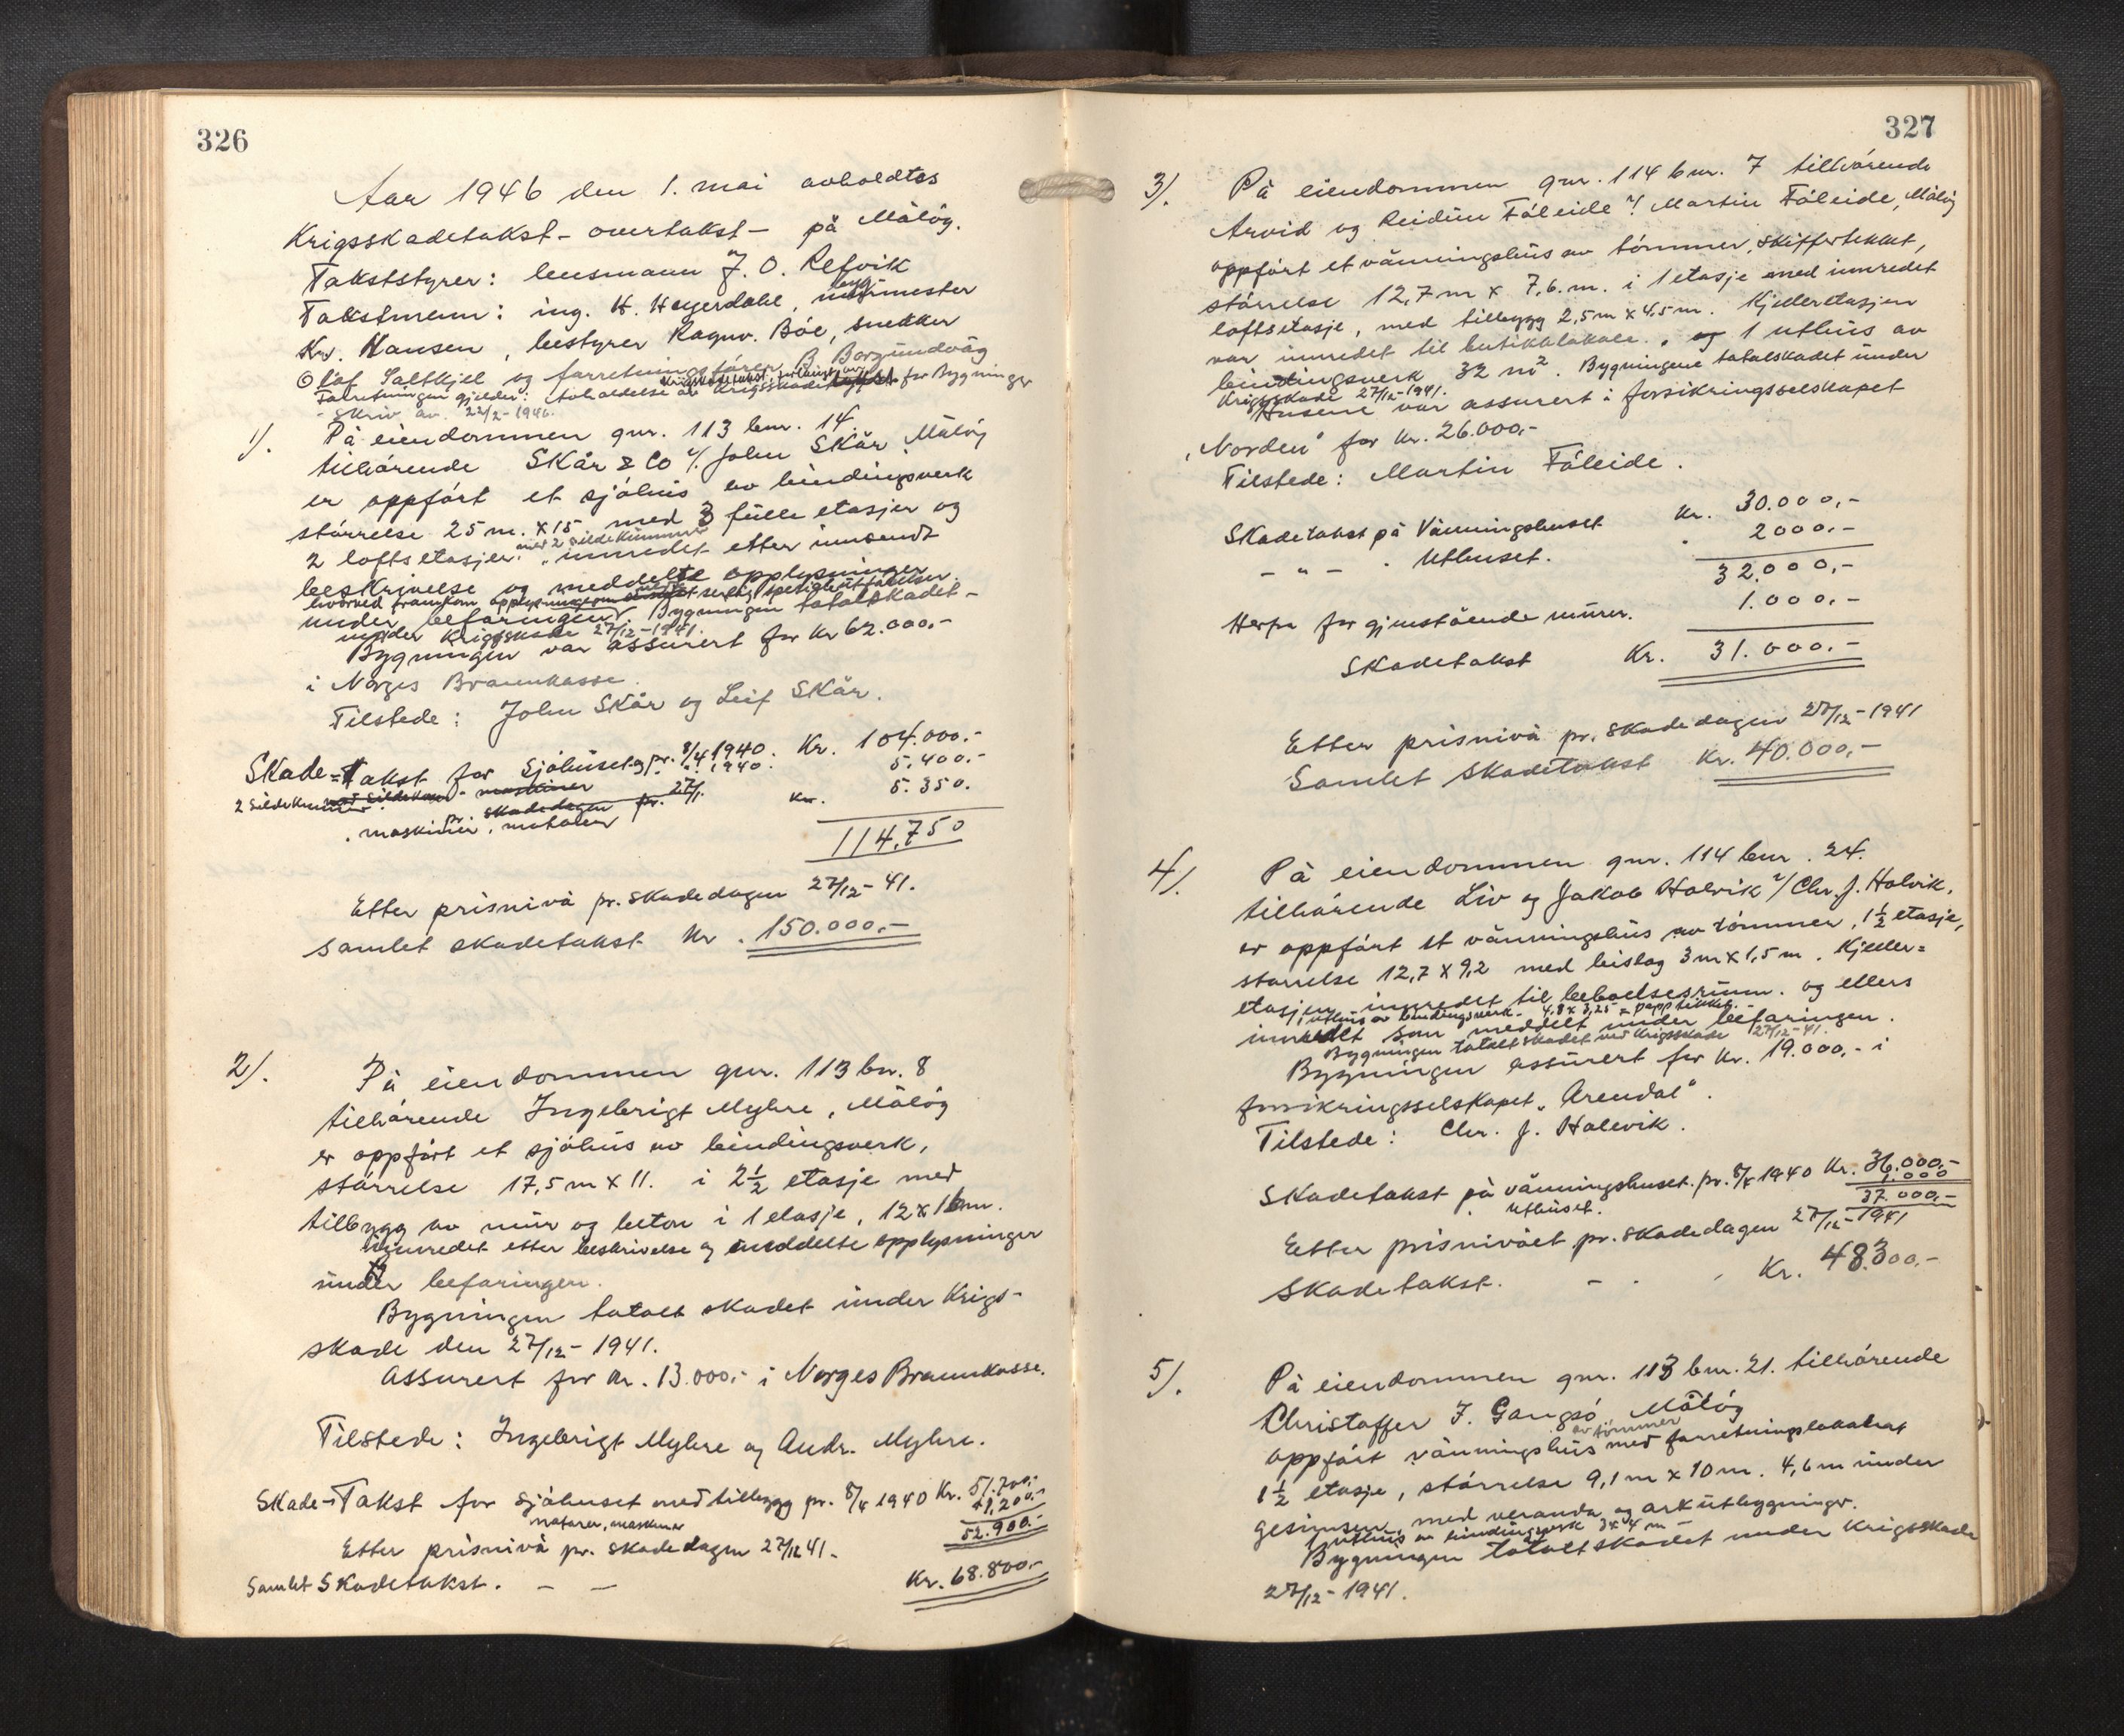 326
Aar 1946 den 1. mai avholdtes
Krigsskadetakst - overtakst - på Måløy.
Takststyrer: lensmann J. O. Refvik
Takstmenn: ing. H. Heyerdahl, bygmester
Kr. Hansen, bestyrer Ragnv. Böe, snekker
Olaf Saltkjel og forretningsförer B. Borgundvåg
Forretningen gjelder: Avholdelse av Krigsskadetakst for Bygninger
- skriv av 22/2-1946.
1). På eiendommen gnr. 113 bnr. 14.
tilhörende Skår & Co v/ John Skår Målöy
er oppfört et sjöhus av bindingsverk
störrelse 25 m. x 15 med 3 fulle etasjer og
2 loftsetasjer. med 2 sildekummer innredet etter innsendt
beskrivelse og meddelte opplysninger
under befaringen. Bygningen totalskadet
under Krigsskade 27/12-1941.
Bygningen var assurert for Kr 62.000.-
i Norges Brannkasse.
Tilstede: John Skår og Leif Skår.
Skade-Takst for Sjöhuset pr. 8/4 1940. Kr. 104.000.-
2 Sildekummer " 1940. 5.400.-
maskiner, motorer kr. 5.350.
114.750
Etter prisnivå pr. skadedagen 27/12-41.
samlet skadetakst Kr. 150.000.-
2). På eiendommen gnr. 113 bn. 8
tilhörende Ingebrigt Myhre, Målöy
er oppfört et sjöhus av bindingsverk,
störrelse 17,5 m x 11. i 2 1/2 etasje med
tilbygg av mur og beton i 1 etasje, 12 x 16 m.
innredet etter beskrivelse og meddelte opplysninger
under befaringen.
Bygningen totalt skadet under Krigs-
skade den 27/12-1941.
Assurert for kr. 13.000.- i Norges Brannkasse.
Tilstede: Ingebrigt Myhre og Andr. Myhre.
Skade-Takst for sjöhuset med tilbygg pr. 8/4 1940 Kr. 51.700.-
motorer, maskiner 1.200.-
52.900.-
Etter prisnivå pr. skadedagen 27/12 41.
Samlet Skadetakst. - - Kr. 68.800.-
327
3). På eiendommen gnr. 114 bnr. 7 tilhörende
Arvid og Reidun Föleide v/ Martin Föleide, Målöy
oppfört et våningshus av tömmer, skiffertekket,
störrelse 12,7 m x 7,6. m. i 1 etasje med innredet
loftsetasje, med tilbygg 2,5 m x 4,5 m. Kjelleretasjen
var innredet til butikklokale. og 1 uthus av
bindingsverk 32 m². Bygningene totalskadet under
Krigsskade 27/12-1941.
Husene var assurert i forsikringsselskapet
"Norden" for kr. 26.000.-
Tilstede: Martin Föleide.
Skadetakst på Våningshuset Kr. 30.000,-
- " - . Uthuset. " 2000.-
32.000,-
Herfra for gjenstående murer. 1.000.-
Skadetakst Kr. 31.000.-
Etter prisnivå pr. skadedagen 27/12-1941
Samlet Skadetakst Kr. 40.000,-
4). På eiendommen gnr. 114 bnr. 24.
tilhörende Liv og Jakob Holvik v/ Chr. J. Holvik,
er oppfört et våningshus av tömmer, 1 1/2 etasje,
störrelse 12,7 x 9,2 med bislag 3 m x 1,5 m. Kjeller=
etasjen innredet til beboelsesrum. og ellers
1 uthus av bindingsverk - 4.8 x 3,25 - papptekket.
innredet som meddelt under befaringen.
Bygningen totalt skadet ved Krigsskade 27/12-41.
Bygningen assurert for Kr. 19.000,- i
forsikringsselskapet "Arendal".
Tilstede: Chr. J. Holevik.
Skadetakst på våningshuset. pr. 8/4 1940 Kr. 36.000.-
uthuset. 1.000
37.000.-
Etter prisnivået pr. skadedagen 27/12-1941
Skadetakst. - . Kr. 48.300.-
5). På eiendommen gnr. 113 bnr. 21. tilhörende
Christoffer J. Gangsö Målöy
oppfört våningshus av tömmer med forretningslokale at
1 1/2 etasje, störrelse 9,1 m x 10 m. 4,6 m under
gesimsen, med veranda og arkutbygninger.
1 uthus av bindingsverk 3 x 4 m -
Bygningen totalt skadet under krigsskade
27/12-1941.